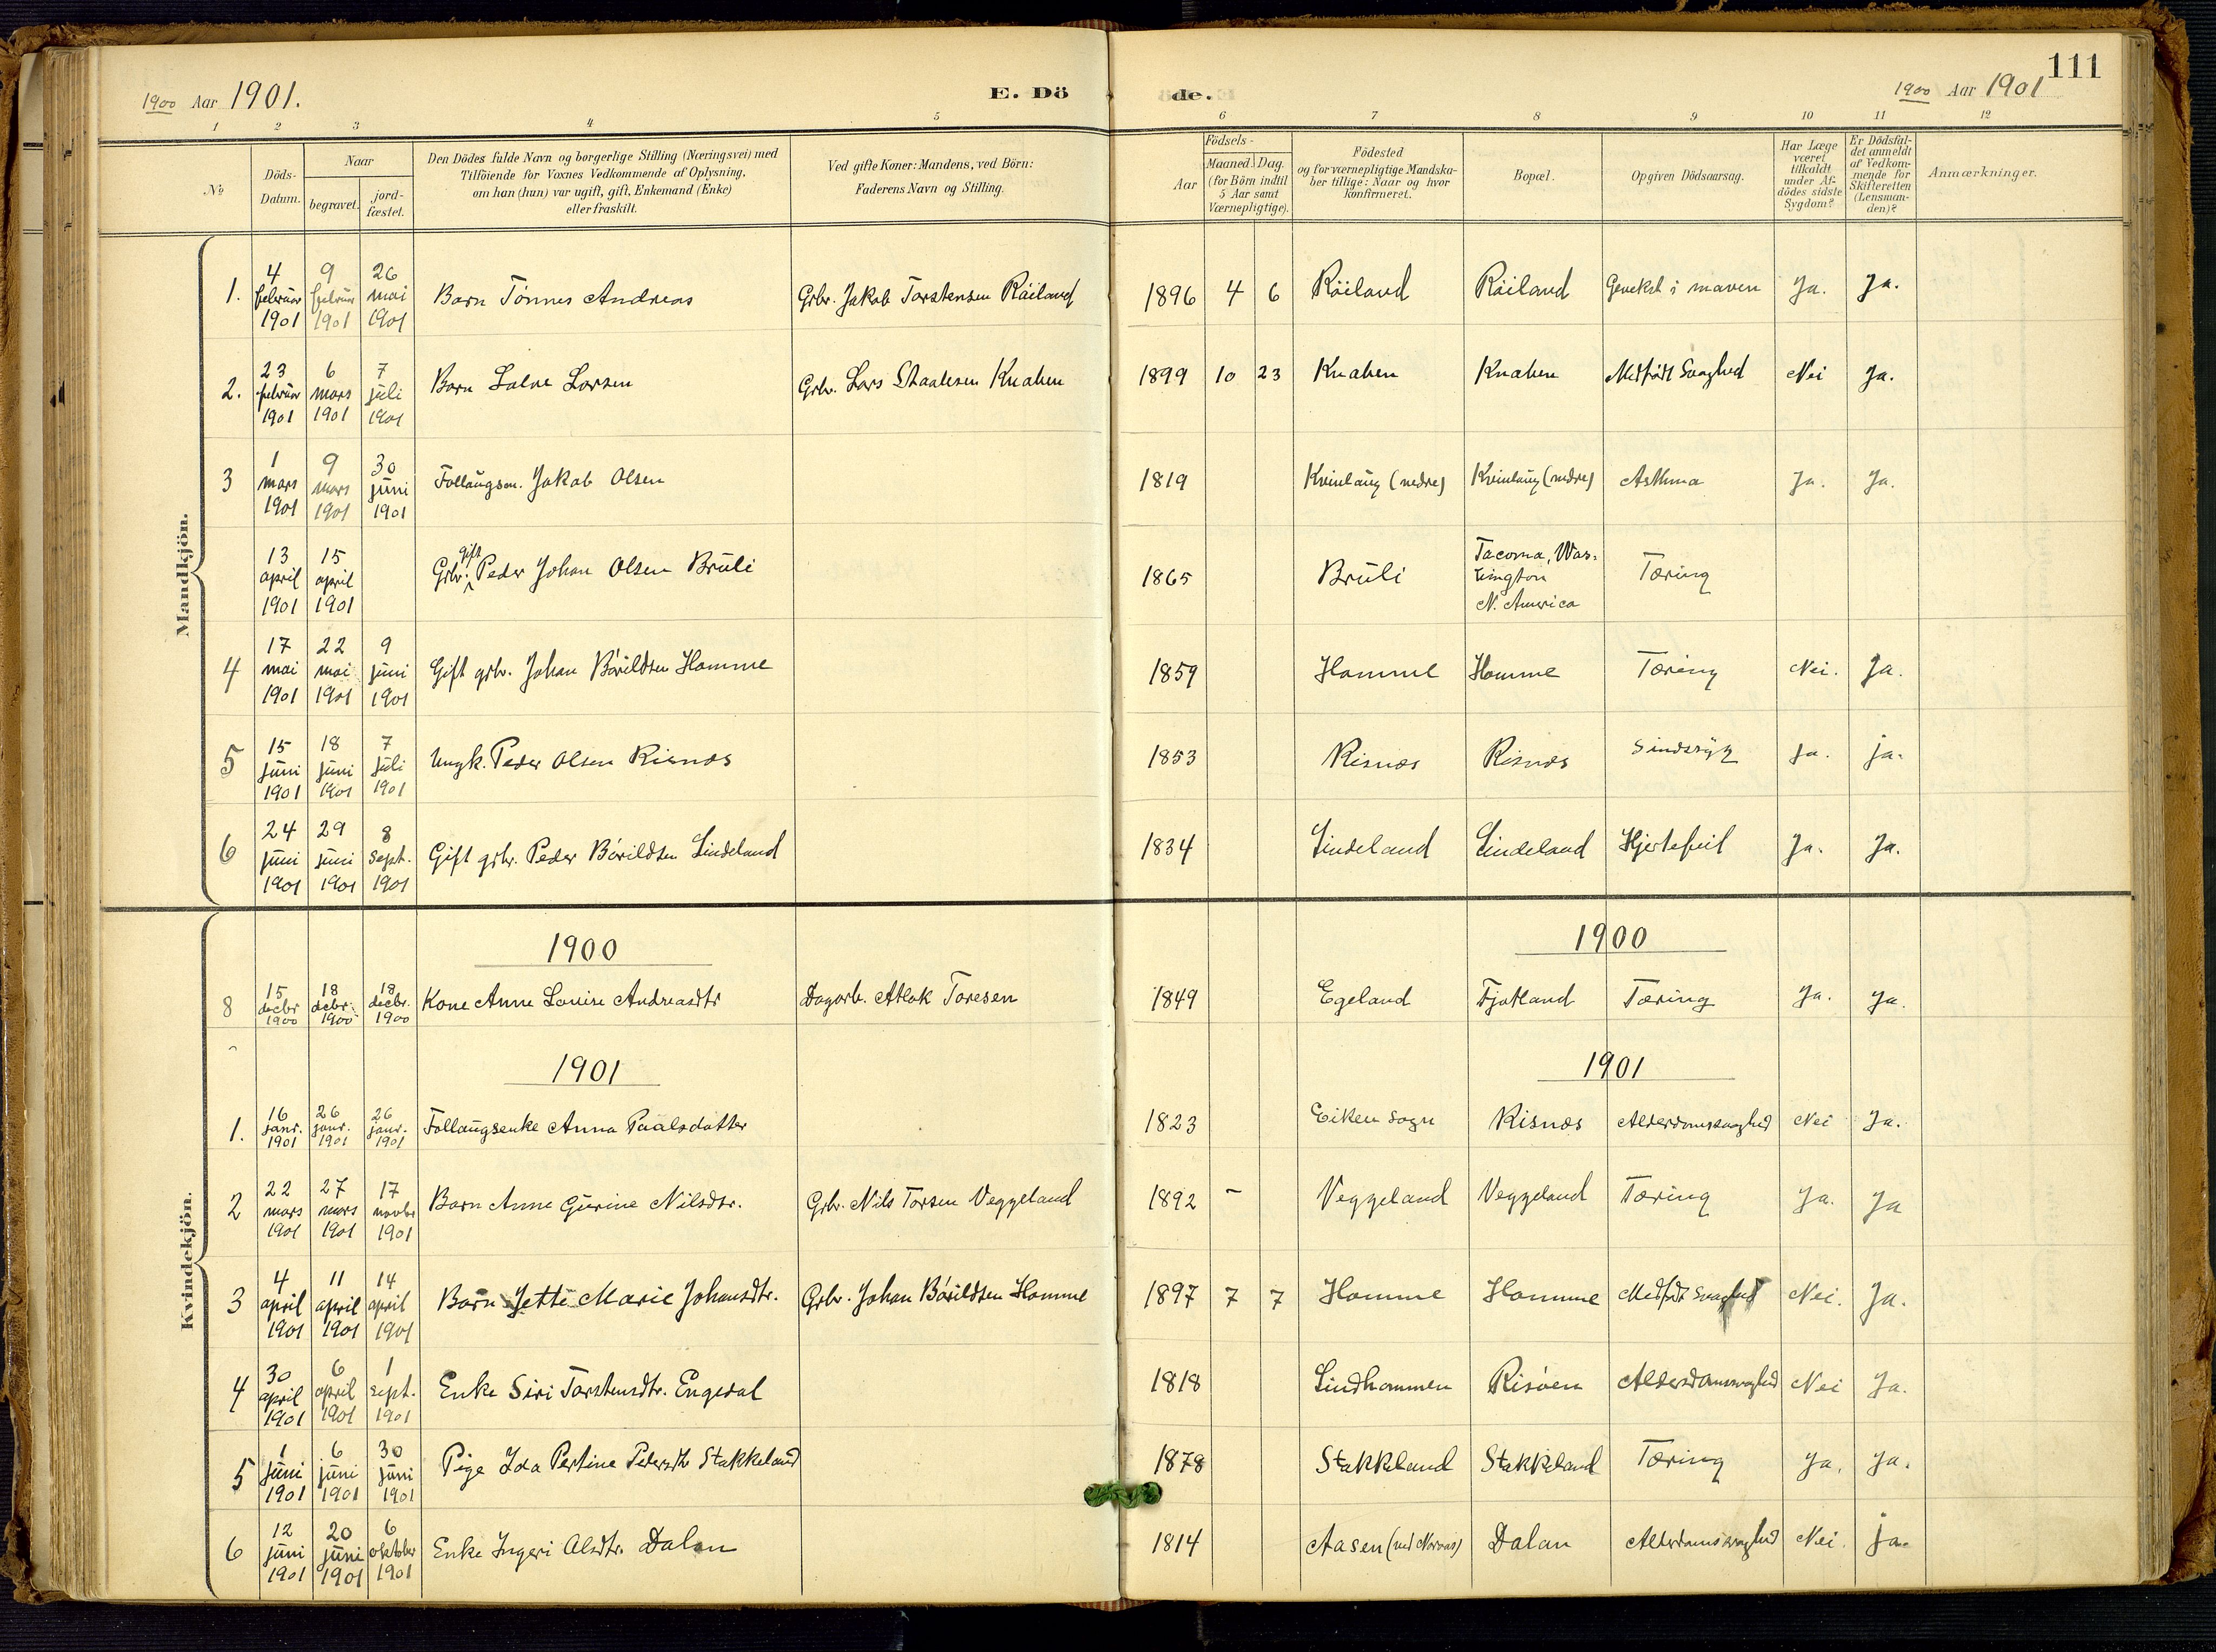 1900 Aar 1901.
E. Dö
de.
1900 Aar 1901
111
1 2 3 4 5 6 7 8 9 10 11 12
No
Döds-
Datum.
Naar
begravet.
jord-
fæstet.
Den Dödes fulde Navn og borgerlige Stilling (Næringsvei) med
Tilföiende for Voxnes Vedkommende af Oplysning,
om han (hun) var ugift, gift, Enkemand (Enke)
eller fraskilt.
Ved gifte Koner: Mandens, ved Börn:
Faderens Navn og Stilling.
Födsels-
Aar
Maaned. Dag.
(for Börn indtil
5 Aar samt
Værnepligtige).
Födested
og for værnepligtige Mandska-
ber tillige: Naar og hvor
konfirmeret.
Bopæl.
Opgiven Dödsaarsag.
Har Læge
været
tilkaldt
under Af-
dödes sidste
Sygdom?
Er Dödsfal-
det anmeldt
af Vedkom-
mende for
Skifteretten
(Lensman-
den)?
Anmærkninger.
Mandkjön.
1. 4 februar 1901 9 februar 1901 26 mai 1901 Barn Tønnes Andreas Grbr. Jakob Torstensen Røiland 1896 4 6 Røiland Røiland i maven Ja. Ja.
2. 23 februar 1901 6 mars 1901 7 juli 1901 Barn Salve Larsen Grbr. Lars Staalesen Knaben 1899 10 23 Knaben Knaben Medfødt Svaghed Nei Ja.
3 1 mars 1901 9 mars 1901 30 juni 1901 Follaugsm. Jakob Olsen 1819 Kvinlaug (nedre) Kvinlaug (nedre) Asthma Ja. Ja.
13 april 1901 15 april 1901 Grbr. gift Peder Johan Olsen Bruli 1865 Bruli Tacoma, Was-
hington
N. America Tæring
4 17 mai 1901 22 mai 1901 9 juni 1901 Gift grbr. Johan Bårildsen Homme 1859 Homme Homme Tæring Nei. Ja.
5 15 juni 1901 18 juni 1901 7 juli 1901 Ungk. Peder Olsen Risnes 1853 Risnes Risnes Sindssyg Ja. ja.
6 24 juni 1901 29 juni 1901 8 sept. 1901 Gift grbr. Peder Bårildsen Lindeland 1834 Lindeland Lindeland Hjertefeil Ja. Ja.
Kvindekjön.
1900 1900
8 15 decbr 1900 18 decbr. 1900 18 decbr. 1900 Kone Anne Louise Andreasdtr Dagarb. Atlak Toresen 1849 Egeland Fjotland Tæring Ja. Ja.
1901 1901
1. 16 janr. 1901 26 janr. 1901 26 janr. 1901 Follaugsenke Anna Paalsdatter 1823 Eiken sogn Risnes Alderdomssvaghed Nei Ja.
2 22 mars 1901 27 mars 1901 17 novbr 1901 Barn Anne Gurine Nilsdtr. Grbr. Nils Torsen Veggeland 1892 - Veggeland Veggeland Tæring Ja. Ja
3 4 april 1901 11 april 1901 14 april 1901 Barn Jette Marie Johansdtr. Grbr. Johan Bårildsen Homme 1897 7 7 Homme Homme Medfødt Svaghed Nei. Ja.
4 30 april 1901 6 april 1901 1 sept. 1901 Enke Siri Torstensdtr. Engedal 1818 Lindhommen Risøen Alderdomssvaghed Nei Ja.
5 1 juni 1901 6 juni 1901 30 juni 1901 Pige Ida Pertine Pedersdtr Stakkeland 1878 Stakkeland Stakkeland Tæring Ja. Ja.
6 12 juni 1901 20 juni 1901 6 oktober 1901 Enke Ingeri Alsdtr. Dalen 1814 Aasen (ved Narvas) Dalan Alderdomssvaghed Nei. ja.